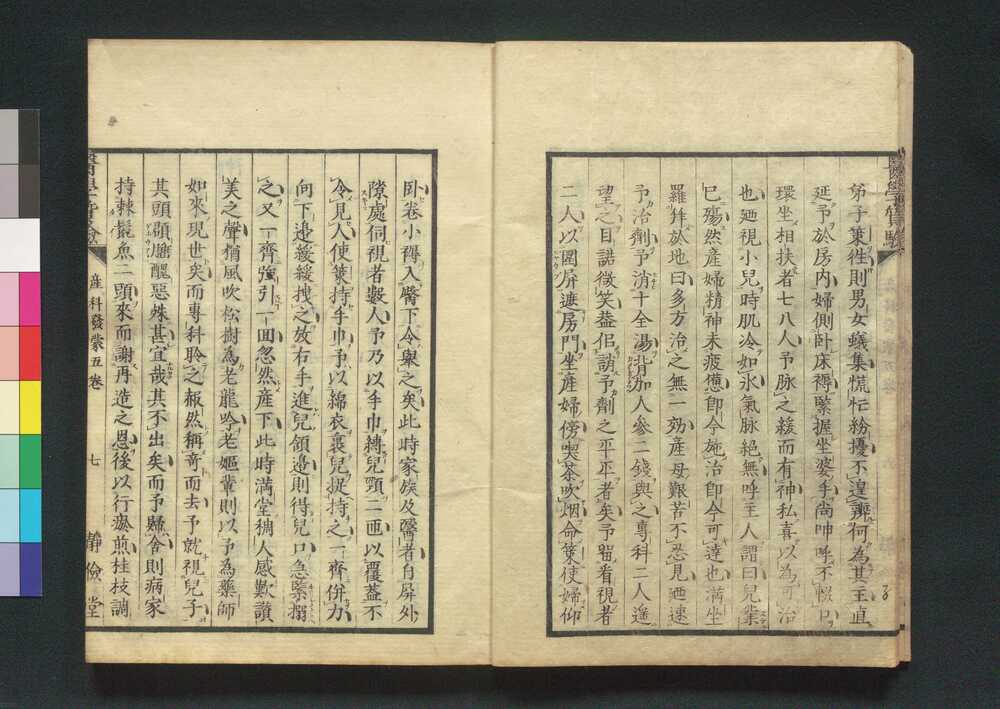 弟子策徃則男女蟻集慌忙紛擾不遑辨何為其主直
延予於房內婦側臥床褥緊握坐婆手尚呻呼不惙口
環坐相扶者七八人予脉之緩而有神私喜以為可治
也廼視小兒時肌冷如氷氣脉絕無呼主人謂曰兒業
已殤然產婦精神未疲憊即今施治即今可達也満坐
羅拜於地曰多方治之無一効產母艱苦不忍見廼速
予治劑予消十全湯背加人参二錢與之專科二人遥
望之目語微笑蓋似誚予劑之平平者矣予留看視者
二人以圍屏遮房門坐產婦傍喫茶吹烟命策使婦仰
臥卷小褥入臀下令擧之矣此時家族及醫者自屏外
隙處伺視者數人予乃以手巾縛兒頸二匝以覆蓋不
令見人使策持手巾予以綿衣裹兒捉持之一齊併力
向下邊緩緩拽之放右手進兒領邊則得兒口急緊搦
之又一齊強引一回忽然產下此時満堂稠人感歎讃
美之聲猶風吹松樹為老龍吟老嫗輩則以予為藥師
如來現世矣而專科聆之赧然稱奇而去予就視兒子
其頭顱膿醌惡殊甚宜哉其不出矣而予懸舍則病家
持棘鬣魚二頭來而謝再造之恩後以行瘀煎桂枝調
產科發蒙五卷
七
靜儉堂